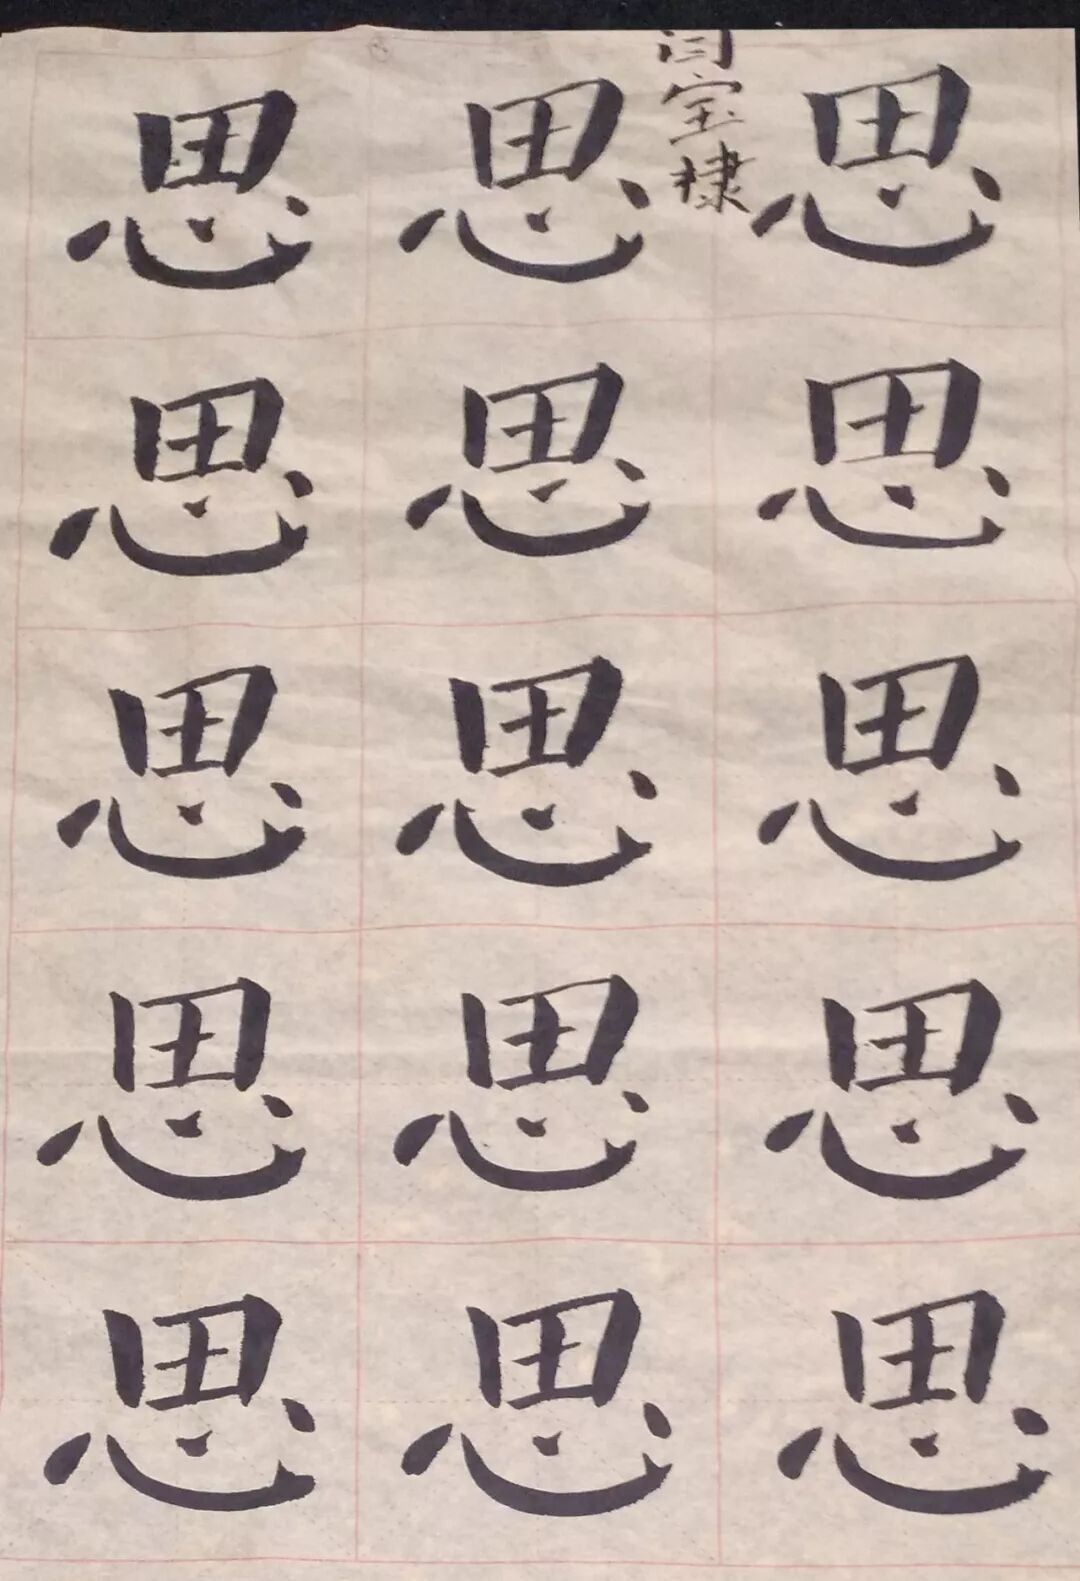 思 思 思
思 思 思
思 思 思
思 思 思
思 思 思
闫宝棣